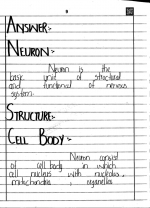 ANSWER:-
NEURON:-
Neuron is the
basic unit of structural
and functional of nervous
system.
STRUCTURE:-
CELL BODY:-
Neuron consist
of cell body in which
cell nucleus with nucleolus,
mitochondria, organelles